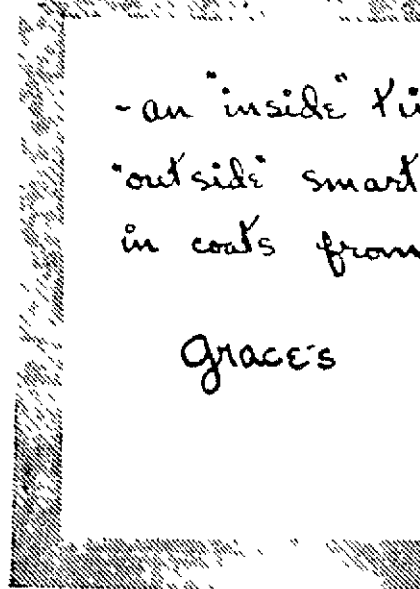 - an "inside"
"outside" smart
in coats from
Grace's